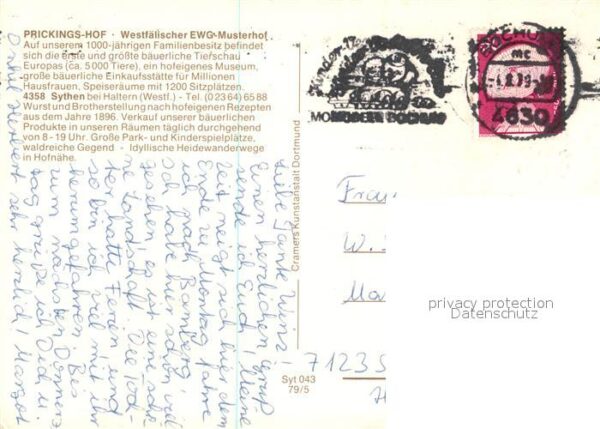 PRICKINGS-HOF · Westfälischer EWG-Musterhof
Auf unserem 1000-jährigen Familienbesitz befindet
sich die erste und größte bäuerliche Tierschau
Europas (ca. 5000 Tiere), ein hofeigenes Museum,
große bäuerliche Einkaufsstätte für Millionen
Hausfrauen, Speiseräume mit 1200 Sitzplätzen.
4358 Sythen bei Haltern (Westf.) - Tel. (02364) 6588
Wurst und Brotherstellung nach hofeigenen Rezepten
aus dem Jahre 1896. Verkauf unserer bäuerlichen
Produkte in unseren Räumen täglich durchgehend
von 8-19 Uhr. Große Park- und Kinderspielplätze,
waldreiche Gegend · Idyllische Heidewanderwege
in Hofnähe.
Liebe
Einen herzlichen Gruß
sende ich Euch! Meine
Zeit neigt sich hier dem
Ende zu. Montag fahre
ich nach Bamberg
habe hier schon viel
gesehen, es ist eine schö-
ne Landschaft.
ter hatte Ferien und
so bin ich viel mit ihr
herumgefahren. Bis
zum nächsten Donners-
tag grüße ich Dich u.
sehr herzlich! Margot
Cramers Kunstanstalt Dortmund
Syt 043
79/5
BOCHUM
mc
4630
BOCHUM
Frau
W.
Ma
71235
privacy protection
Datenschutz